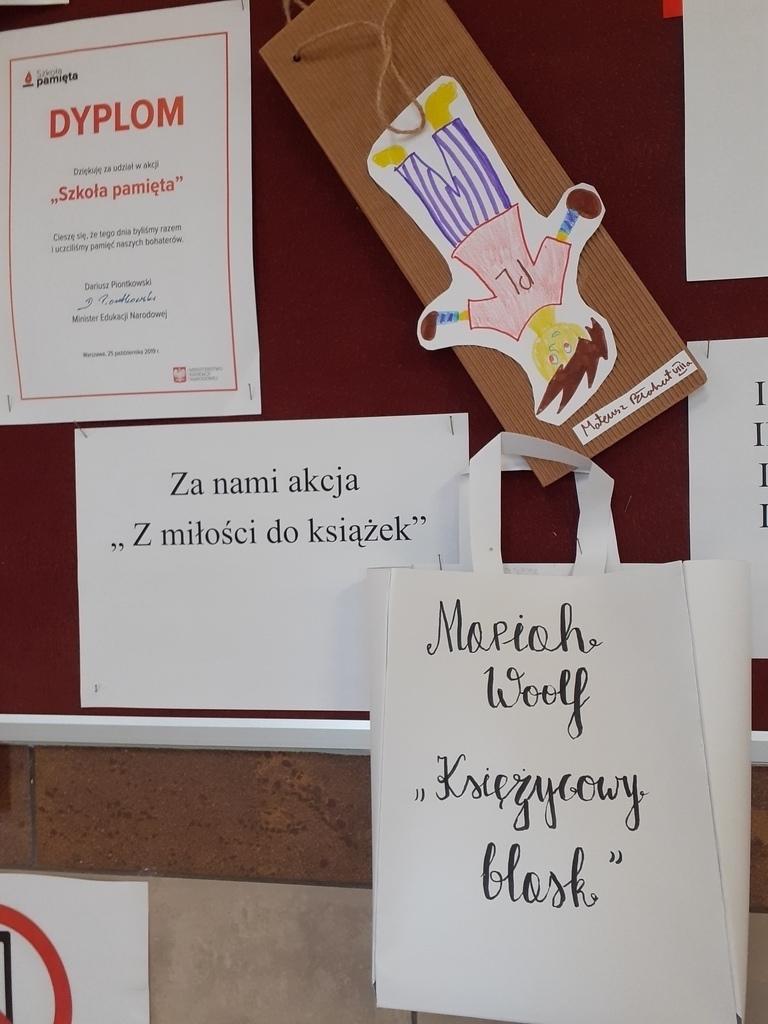 Szkoła
pamięta
DYPLOM
Dziękuję za udział w akcji
„Szkoła pamięta”
Cieszę się, że tego dnia byliśmy razem
i uczciliśmy pamięć naszych bohaterów.
Dariusz Piontkowski
D. Piontkowski
Minister Edukacji Narodowej
Warszawa, 25 października 2019 r.
MINISTERSTWO
EDUKACJI
NARODOWEJ
Mateusz
Za nami akcja
„ Z miłości do książek”
Mariah
Woolf
„Księżycowy
blask”